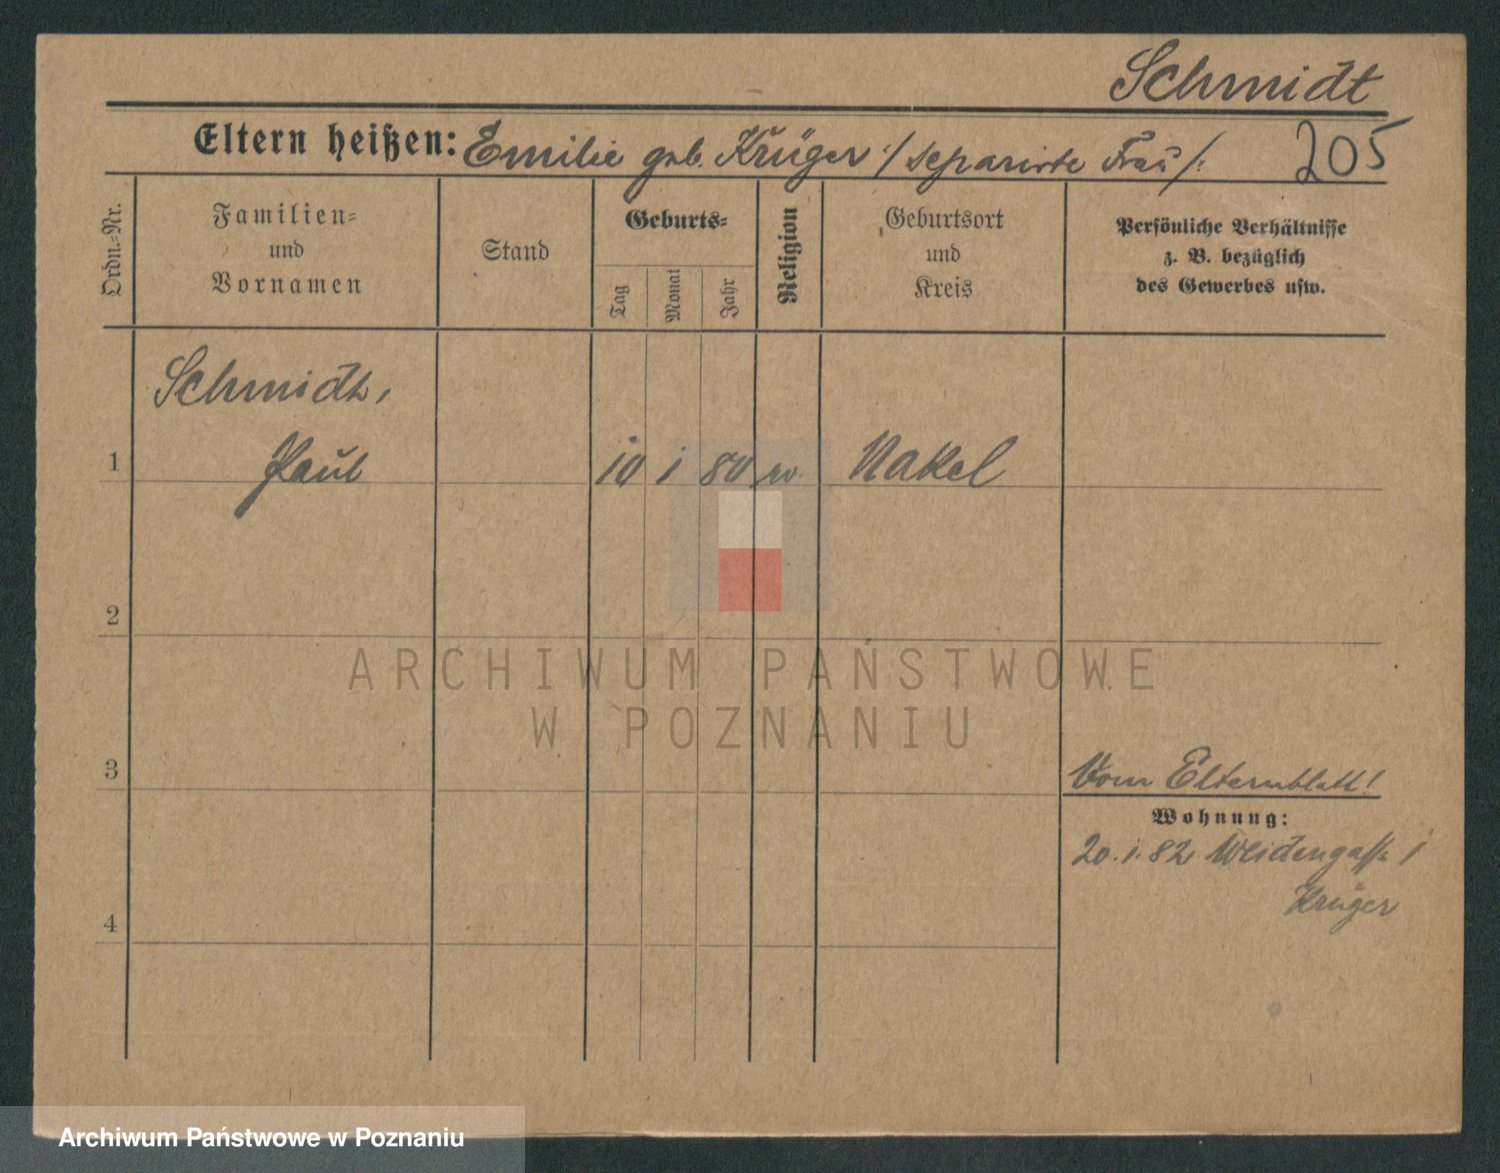 Schmidt
Eltern heißen: Emilie geb. Krüger /: separirte Frau /: 205
Ordn.-Nr.
Familien-
und
Vornamen
Stand
Geburts-
Tag
Monat
Jahr
Religion
Geburtsort
und
Kreis
Persönliche Verhältnisse
z. B. bezüglich
des Gewerbes usw.
Schmidt,
1 Paul 10 1 80 Nakel
2
ARCHIWUM PAŃSTWOWE
W POZNANIU
3 Vom Elternblatt!
Wohnung:
20.1.82 Weidengasse 1
Krüger
4
Archiwum Państwowe w Poznaniu